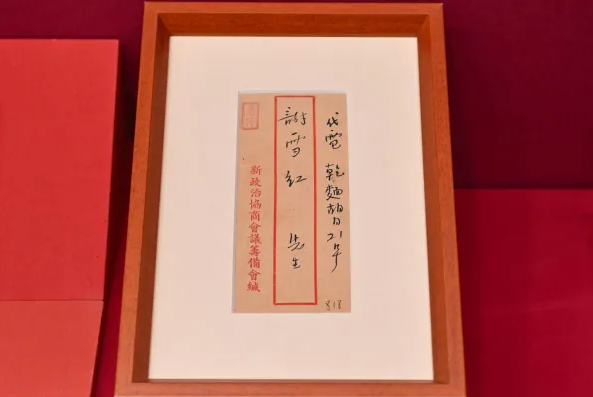 代電 乾麵胡同21号
謝雪紅 先生
新政治協商會議籌備會緘